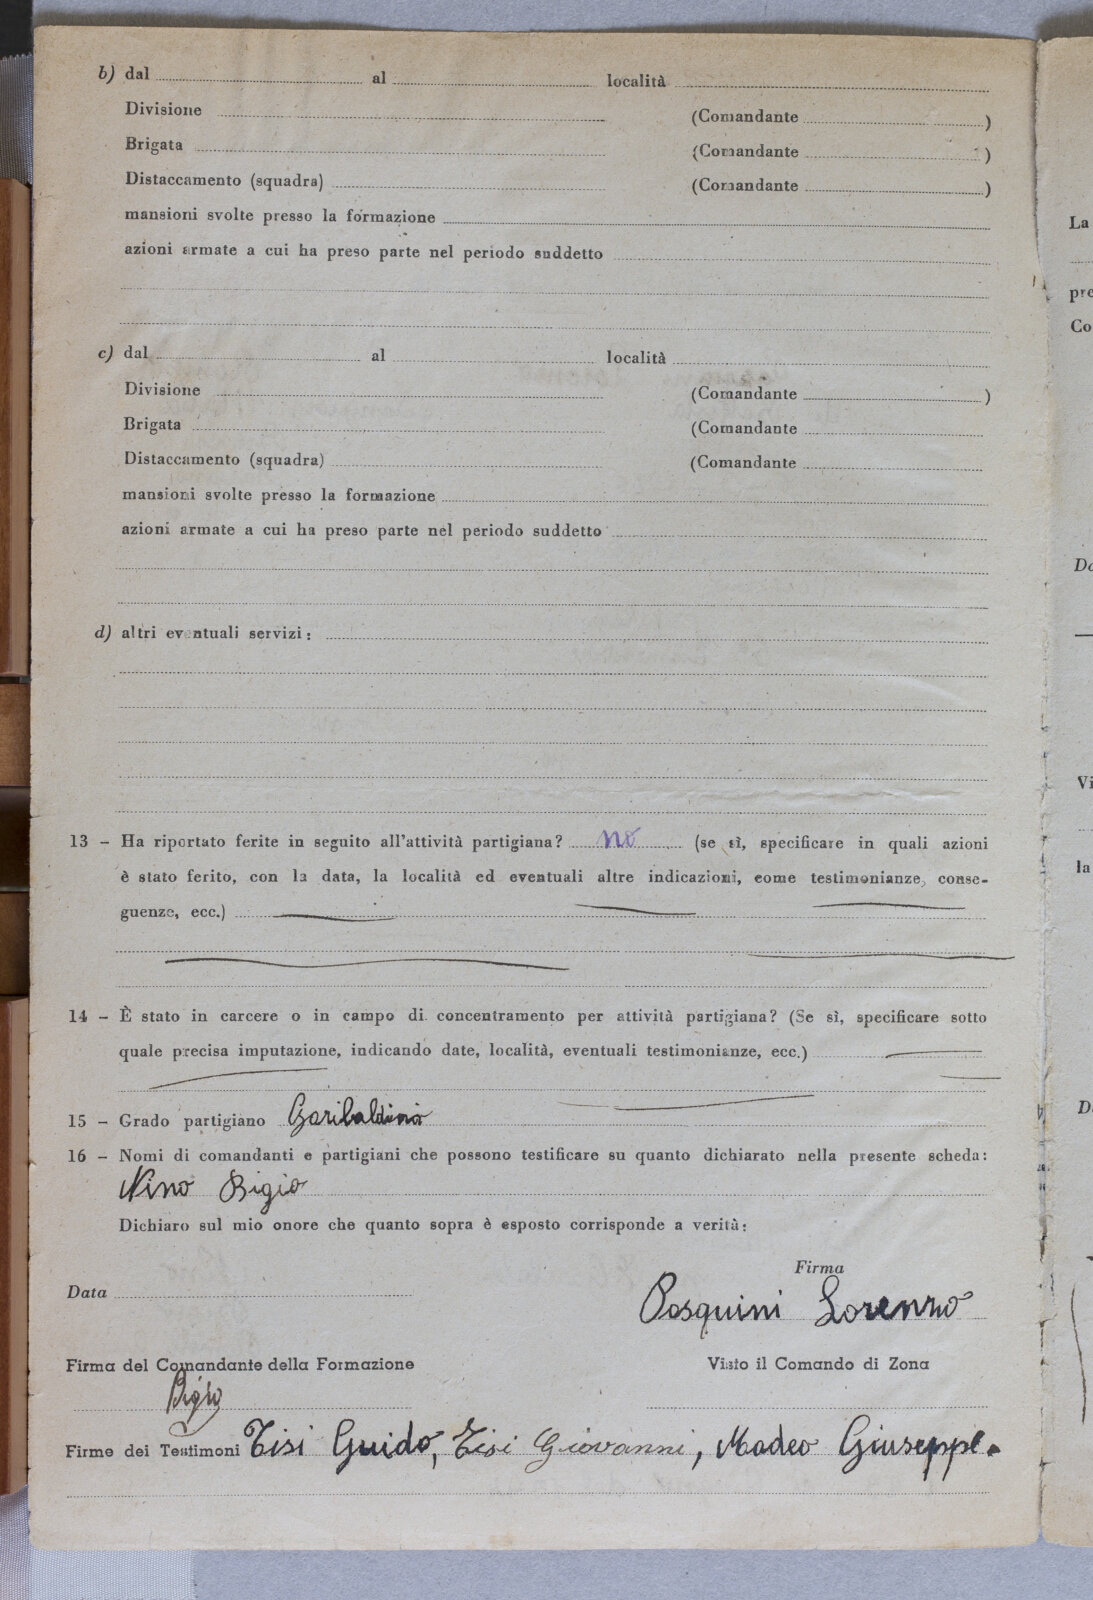 b) dal al località
Divisione (Comandante )
Brigata (Comandante )
Distaccamento (squadra) (Comandante )
mansioni svolte presso la formazione
azioni armate a cui ha preso parte nel periodo suddetto
c) dal al località
Divisione (Comandante )
Brigata (Comandante
Distaccamento (squadra) (Comandante
mansioni svolte presso la formazione
azioni armate a cui ha preso parte nel periodo suddetto
d) altri eventuali servizi:
13 – Ha riportato ferite in seguito all'attività partigiana? no (se sì, specificare in quali azioni
è stato ferito, con la data, la località ed eventuali altre indicazioni, come testimonianze, conse-
guenze, ecc.)
14 – È stato in carcere o in campo di concentramento per attività partigiana? (Se sì, specificare sotto
quale precisa imputazione, indicando date, località, eventuali testimonianze, ecc.)
15 – Grado partigiano Garibaldino
16 – Nomi di comandanti e partigiani che possono testificare su quanto dichiarato nella presente scheda:
Nino Bigio
Dichiaro sul mio onore che quanto sopra è esposto corrisponde a verità:
Firma
Data Pasquini Lorenzo
Firma del Comandante della Formazione Visto il Comando di Zona
Bigio
Firme dei Testimoni Tisi Guido, Tisi Giovanni, Madeo Giuseppe.
La
pre
Co
Vi
la